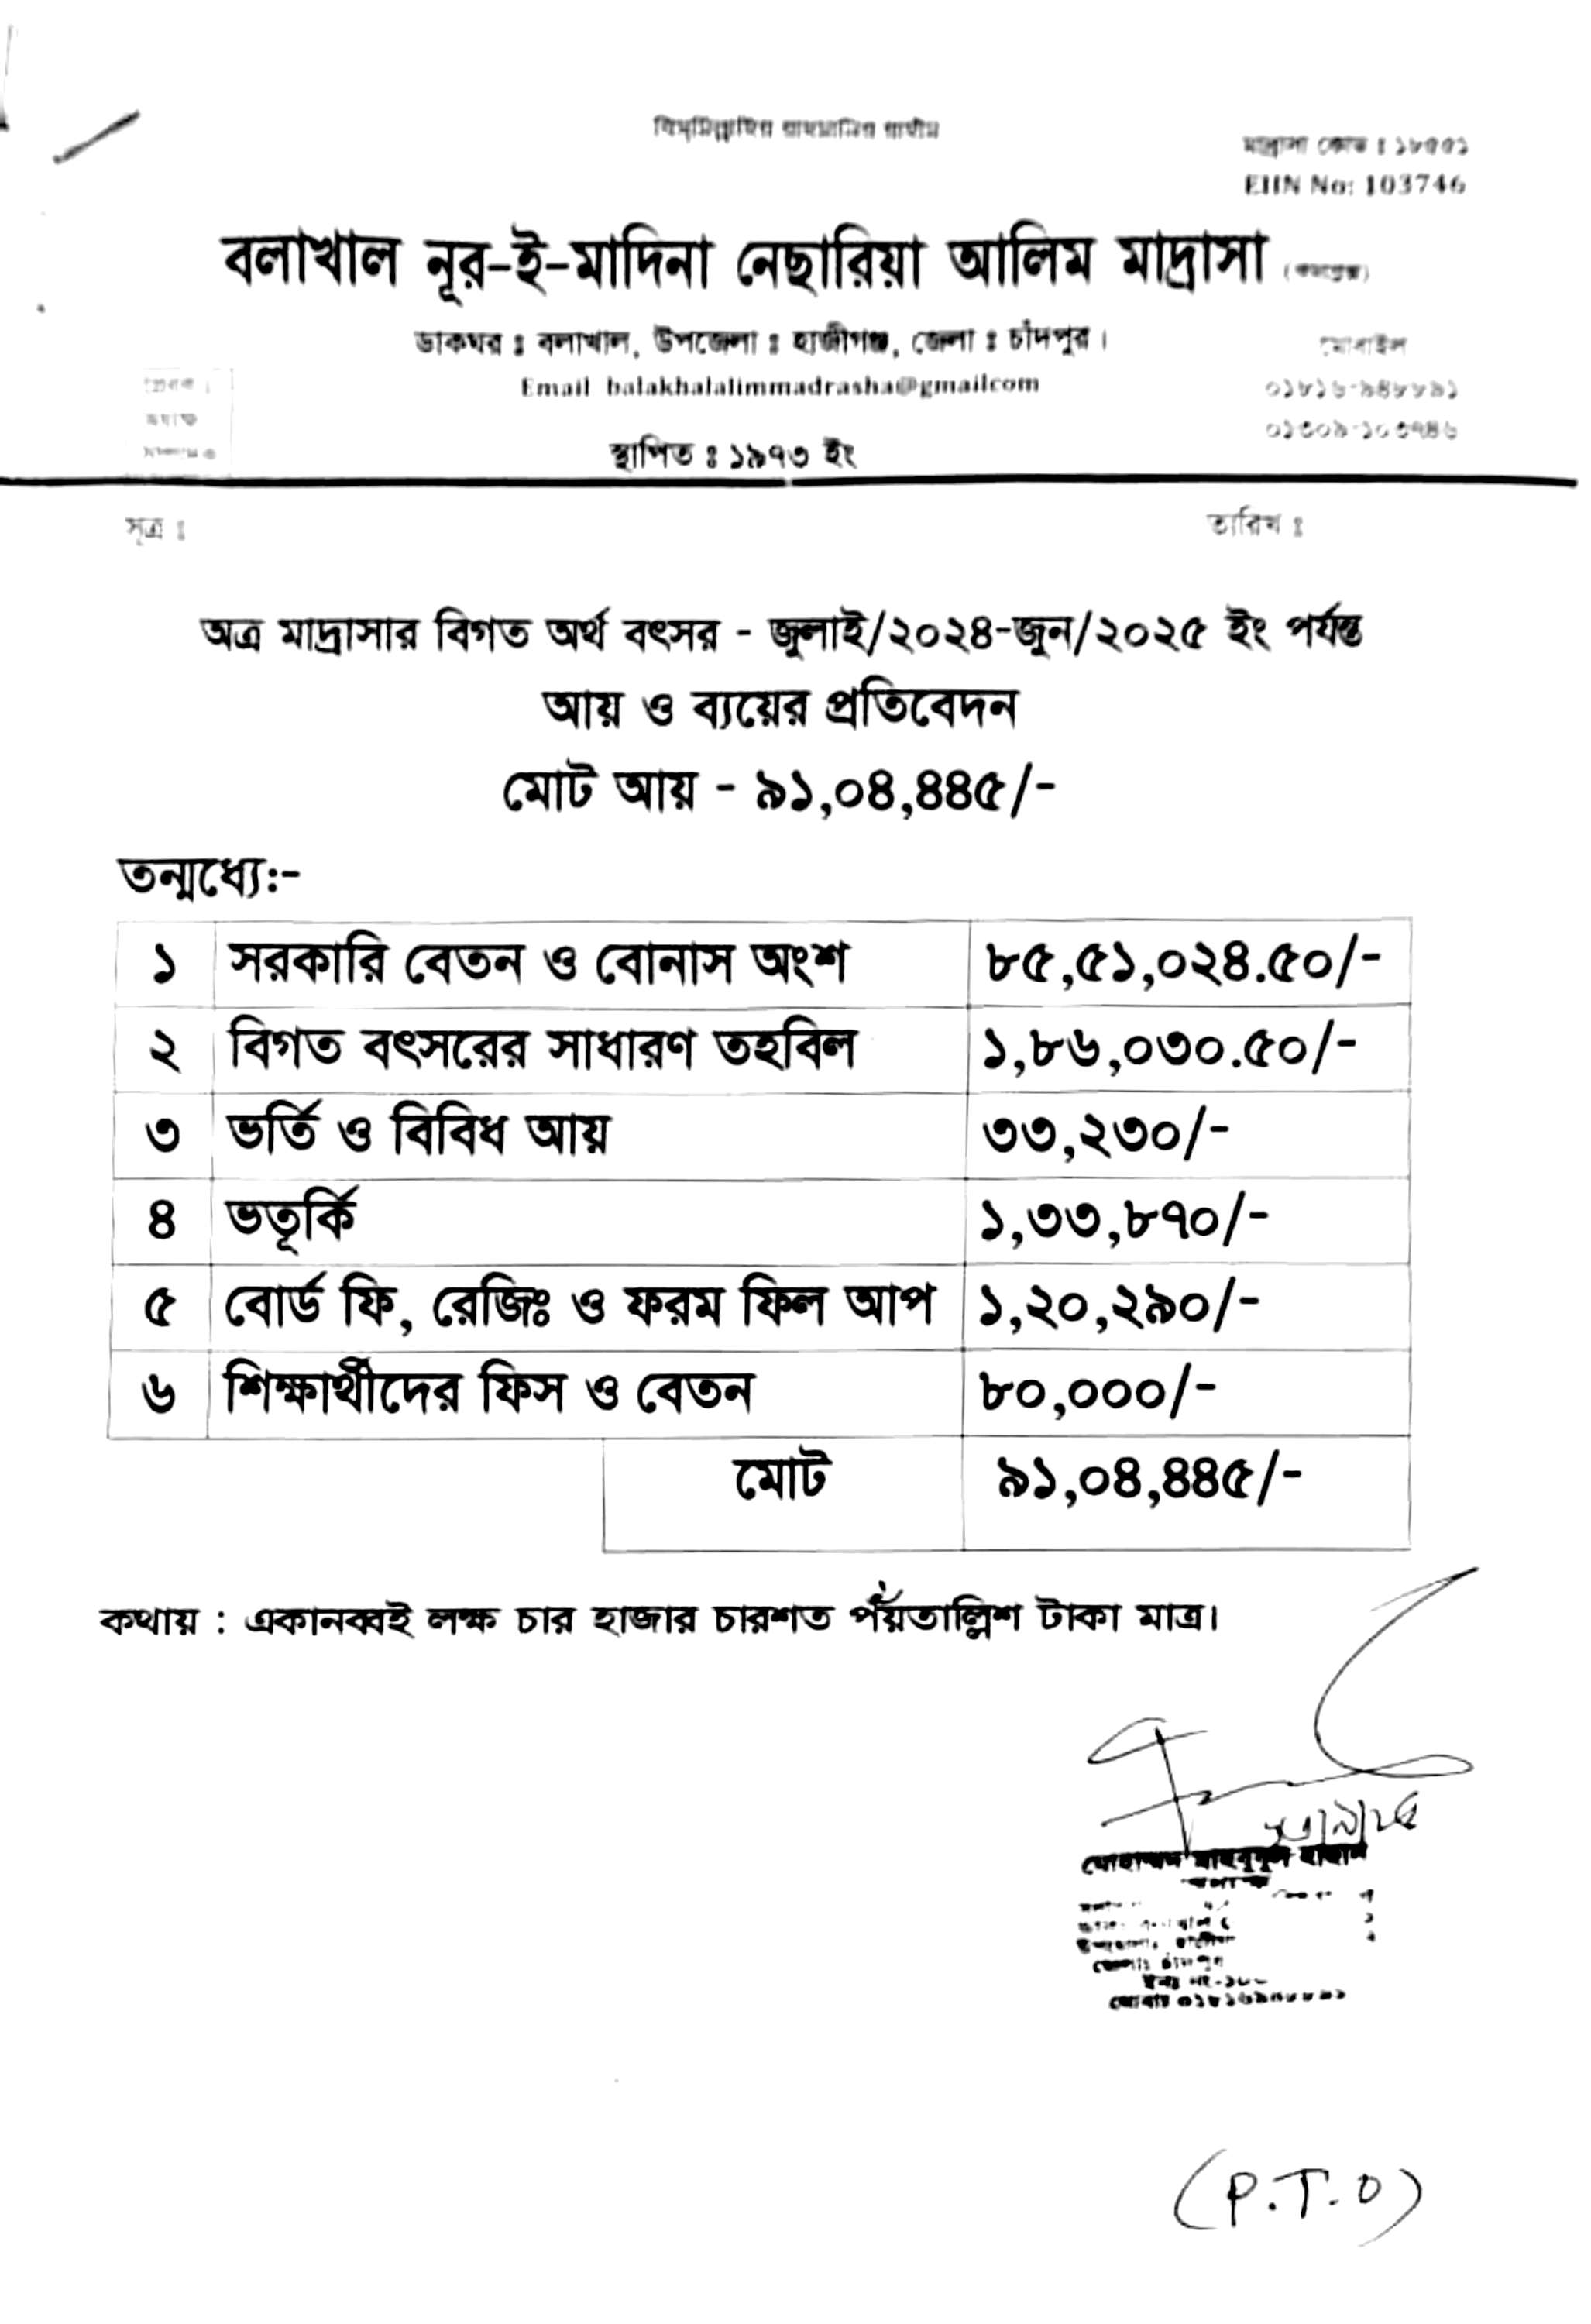 বিস্‌মিল্লাহির রাহমানির রাহীম
মাদ্রাসা কোড ঃ ১৮৫৫১
EIIN No: 103746
বলাখাল নূর-ই-মাদিনা নেছারিয়া আলিম মাদ্রাসা
ডাকঘর ঃ বলাখাল, উপজেলা ঃ হাজীগঞ্জ, জেলা ঃ চাঁদপুর।
মোবাইল
Email balakhalalimmadrasha@gmailcom
প্রেরক ।
০১৮১৬-৯৪৮৮৯১
অধ্যক্ষ
০১৩০৯-১০৩৭৪৬
স্থাপিত ঃ ১৯৭৩ ইং
সূত্র ঃ
তারিখ ঃ
অত্র মাদ্রাসার বিগত অর্থ বৎসর - জুলাই/২০২৪-জুন/২০২৫ ইং পর্যন্ত
আয় ও ব্যয়ের প্রতিবেদন
মোট আয় - ৯১,০৪,৪৪৫/-
তন্মধ্যে:-
১ সরকারি বেতন ও বোনাস অংশ ৮৫,৫১,০২৪.৫০/-
২ বিগত বৎসরের সাধারণ তহবিল ১,৮৬,০৩০.৫০/-
৩ ভর্তি ও বিবিধ আয় ৩৩,২৩০/-
৪ ভতূর্কি ১,৩৩,৮৭০/-
৫ বোর্ড ফি, রেজিঃ ও ফরম ফিল আপ ১,২০,২৯০/-
৬ শিক্ষার্থীদের ফিস ও বেতন ৮০,০০০/-
মোট ৯১,০৪,৪৪৫/-
কথায় : একানব্বই লক্ষ চার হাজার চারশত পঁয়তাল্লিশ টাকা মাত্র।
অধ্যক্ষ
জেলাঃ চাঁদপুর
(P.T.O)